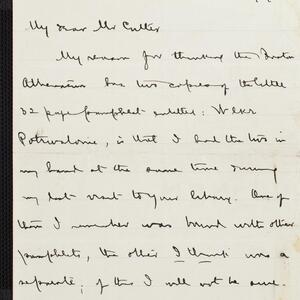 My dear Mr Cutter
My reason for thinking the Boston
Athenaeum has two copies of the little
32 page pamphlet entitled:
is that I had the two in
my hand at the same time during
my last visit to your library. One of
them I remember was bound with other
pamphlets, the other I think was a
separate; of this I will not be sure.